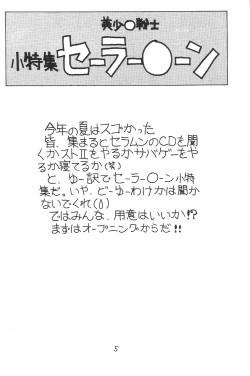 美少○戦士
小特集 セーラー○ーン
今年の夏はスゴかった
皆、集まるとセラムンのCDを聞
くかストⅡをやるかサバゲーをや
るか寝てるか(笑)
と、ゆー訳でセーラー○ーン小特
集だ。いや、どーゆーわけかは聞か
ないでくれ()
ではみんな、用意はいいか!?
まずはオープニングからだ!!
5